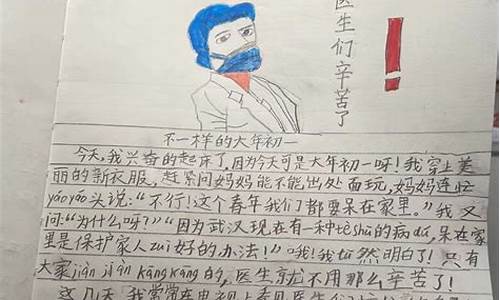 医生们辛苦了！
不一样的大年初一
今天，我兴奋的起床了，因为今天可是大年初一呀！我穿上美
丽的新衣服，赶紧问妈妈能不能出处面玩，妈妈连忙
yáo yáo头说：“不行！这个春年我们都要呆在家里。”我又
问：“为什么呀？”“因为武汉现在有一种tè shū的病dú，呆在家
里是保护家人zuì好的办法！”哦！我tū然明白了！只有
大家jiàn jiàn kāng kāng的，医生就不用那么辛苦了！
这几天，我常常在电视上看见医生们